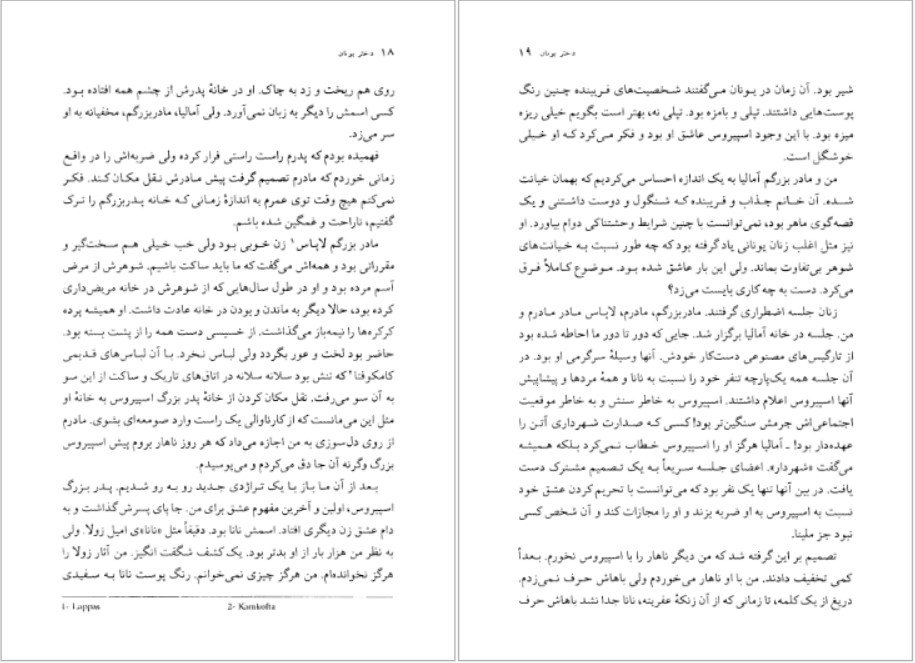 ۱۸ دختر یونان
روی هم ریخت و زد به چاک. او در خانهٔ پدرش از چشم همه افتاده بود.
کسی اسمش را دیگر به زبان نمی‌آورد. ولی آمالیا، مادربزرگم، مخفیانه به او
سر می‌زد.
فهمیده بودم که پدرم راست راستی فرار کرده ولی ضربه‌اش را در واقع
زمانی خوردم که مادرم تصمیم گرفت پیش مادرش نقل مکان کند. فکر
نمی‌کنم هیچ وقت توی عمرم به اندازهٔ زمانی که خانه پدربزرگم را ترک
گفتیم، ناراحت و غمگین شده باشم.
مادر بزرگم لاپاس۱ زن خوبی بود ولی خب خیلی هم سخت‌گیر و
مقرراتی بود و همه‌اش می‌گفت که ما باید ساکت باشیم. شوهرش از مرض
آسم مرده بود و او در طول سال‌هایی که از شوهرش در خانه مریض‌داری
کرده بود، حالا دیگر به ماندن و بودن در خانه عادت داشت. او همیشه پرده
کرکره‌ها را نیمه‌باز می‌گذاشت. از خسیسی دست همه را از پشت بسته بود.
حاضر بود لخت و عور بگردد ولی لباس نخرد. با آن لباس‌های قدیمی
کامکوفتا۲ که تنش بود سلانه سلانه در اتاق‌های تاریک و ساکت از این سو
به آن سو می‌رفت. نقل مکان کردن از خانه پدر بزرگ اسپیروس به خانهٔ او
مثل این می‌مانست که از کارناوالی یک راست وارد صومعه‌ای بشوی. مادرم
از روی دل‌سوزی به من اجازه می‌داد که هر روز ناهار بروم پیش اسپیروس
بزرگ وگرنه آن جا دق می‌کردم و می‌پوسیدم.
بعد از آن ما باز با یک تراژدی جدید رو به رو شدیم. پدر بزرگ
اسپیروس، اولین و آخرین مفهوم عشق برای من، جا پای پسرش گذاشت و به
دام عشق زن دیگری افتاد. اسمش نانا بود. دقیقاً مثل «نانا»ی امیل زولا. ولی
به نظر من هزار بار از او بدتر بود. یک کشف شگفت انگیز. من آثار زولا را
هرگز نخوانده‌ام. من هرگز چیزی نمی‌خوانم. رنگ پوست نانا به سفیدی
1- Lappas 2- Kamkofta
دختر یونان ۱۹
شیر بود. آن زمان در یونان می‌گفتند شخصیت‌های فریبنده چنین رنگ
پوست‌هایی داشتند. تپلی و بامزه بود. تپلی نه، بهتر است بگویم خیلی ریزه
میزه بود. با این وجود اسپیروس عاشق او بود و فکر می‌کرد که او خیلی
خوشگل است.
من و مادر بزرگم آمالیا به یک اندازه احساس می‌کردیم که بهمان خیانت
شده. آن خانم جذاب و فریبنده که شنگول و دوست داشتنی و یک
قصه‌گوی ماهر بود، نمی‌توانست با چنین شرایط وحشتناکی دوام بیاورد. او
نیز مثل اغلب زنان یونانی یاد گرفته بود که چه طور نسبت به خیانت‌های
شوهر بی‌تفاوت بماند. ولی این بار عاشق شده بود. موضوع کاملاً فرق
می‌کرد. دست به چه کاری بایست می‌زد؟
زنان جلسه اضطراری گرفتند. مادربزرگم، مادرم، لاپاس مادر مادرم و
من. جلسه در خانه آمالیا برگزار شد. جایی که دور تا دور ما احاطه شده بود
از نارگیس‌های مصنوعی دست‌کار خودش. آنها وسیلهٔ سرگرمی او بود. در
آن جلسه همه یک‌پارچه تنفر خود را نسبت به نانا و همهٔ مردها و پیشاپیش
آنها اسپیروس اعلام داشتند. اسپیروس به خاطر سنش و به خاطر موقعیت
اجتماعی‌اش جرمش سنگین‌تر بود! کسی که صدارت شهرداری آتن را
عهده‌دار بود! ـ آمالیا هرگز او را اسپیروس خطاب نمی‌کرد بلکه همیشه
می‌گفت «شهردار». اعضای جلسه سریعاً به یک تصمیم مشترک دست
یافت. در بین آنها تنها یک نفر بود که می‌توانست با تحریم کردن عشق خود
نسبت به اسپیروس به او ضربه بزند و او را مجازات کند و آن شخص کسی
نبود جز ملینا.
تصمیم بر این گرفته شد که من دیگر ناهار را با اسپیروس نخورم. بعداً
کمی تخفیف دادند. من با او ناهار می‌خوردم ولی باهاش حرف نمی‌زدم.
دریغ از یک کلمه، تا زمانی که از آن زنکهٔ عفریته، نانا جدا نشد باهاش حرف